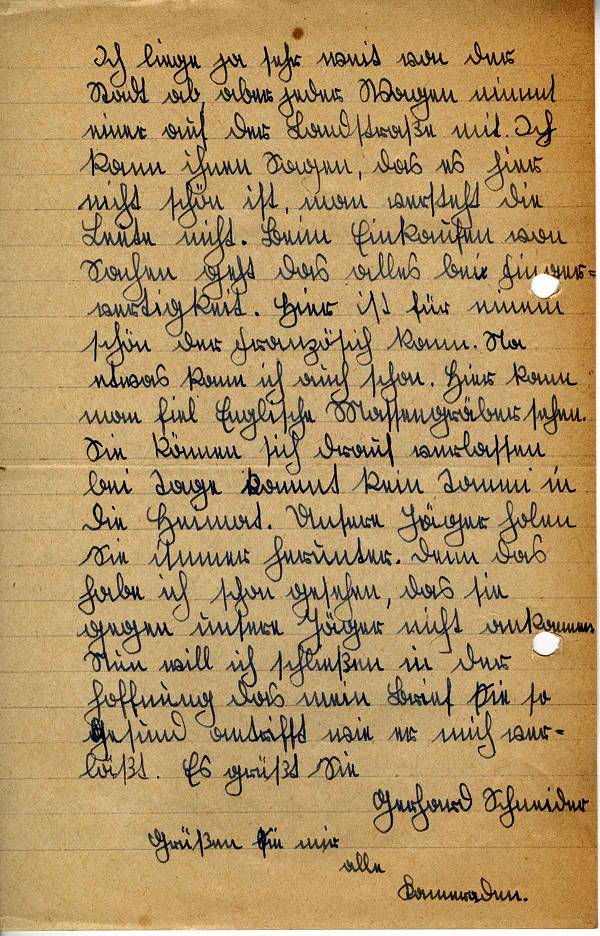 Ich liege ja sehr weit von der
Stadt ab, aber jeder Wagen nimmt
einer auf der Landstraße mit. Ich
kann ihnen Sagen, das es hier
nicht schön ist, man versteht die
Leute nicht. Beim Einkaufen von
Sachen geht das alles bei Finger=
vertigkeit. Hier ist für einem
schön der französich kann. Na
etwas kann ich auch schon. Hier kann
man fiel Englische Massengräber sehen.
Sie können sich drauf verlassen
bei Tage kommt kein Tommi in
die Heimat. Unsere Jäger holen
Sie immer herunter. Denn das
habe ich schon gesehen, das sie
gegen unsere Jäger nicht ankommen
Nun will ich schließen in der
Hoffnung das mein Brief Sie so
Gesund antrifft wie er mich ver=
läßt. Es grüßt Sie
Gerhard Schneider
Grüßen Sie mir
alle
Kameraden.